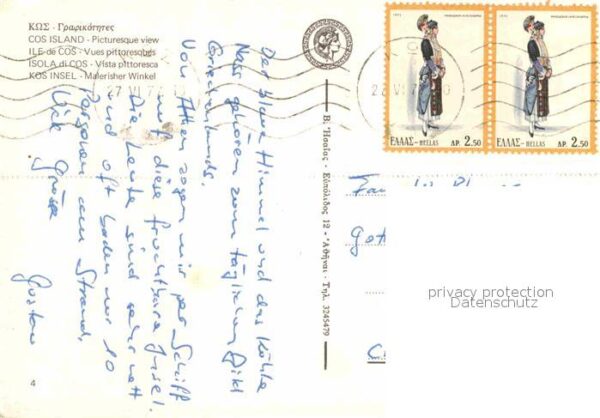 ΚΩΣ - Γραφικότητες
COS ISLAND - Picturesque view
ILE de COS - Vues pittoresques
ISOLA di COS - Vista pittoresca
KOS INSEL - Malerisher Winkel
27 VI 7
Der blaue Himmel und das kühle
Nass gehören zum täglichen Bild
Griechenlands.
Von Athen zogen wir per Schiff
auf diese fruchtbare Insel.
Die Leute sind sehr nett
und oft baden nur 10
Personen am Strand.
Liebe Grüsse
Gustav
4
Β. Ἡσαΐας - Εὐπόλιδος 12 - Ἀθῆναι - Τηλ. 3245479
ΕΛΛΑΣ-HELLAS ΔΡ. 2.50
ΕΛΛΑΣ-HELLAS ΔΡ. 2.50
privacy protection
Datenschutz